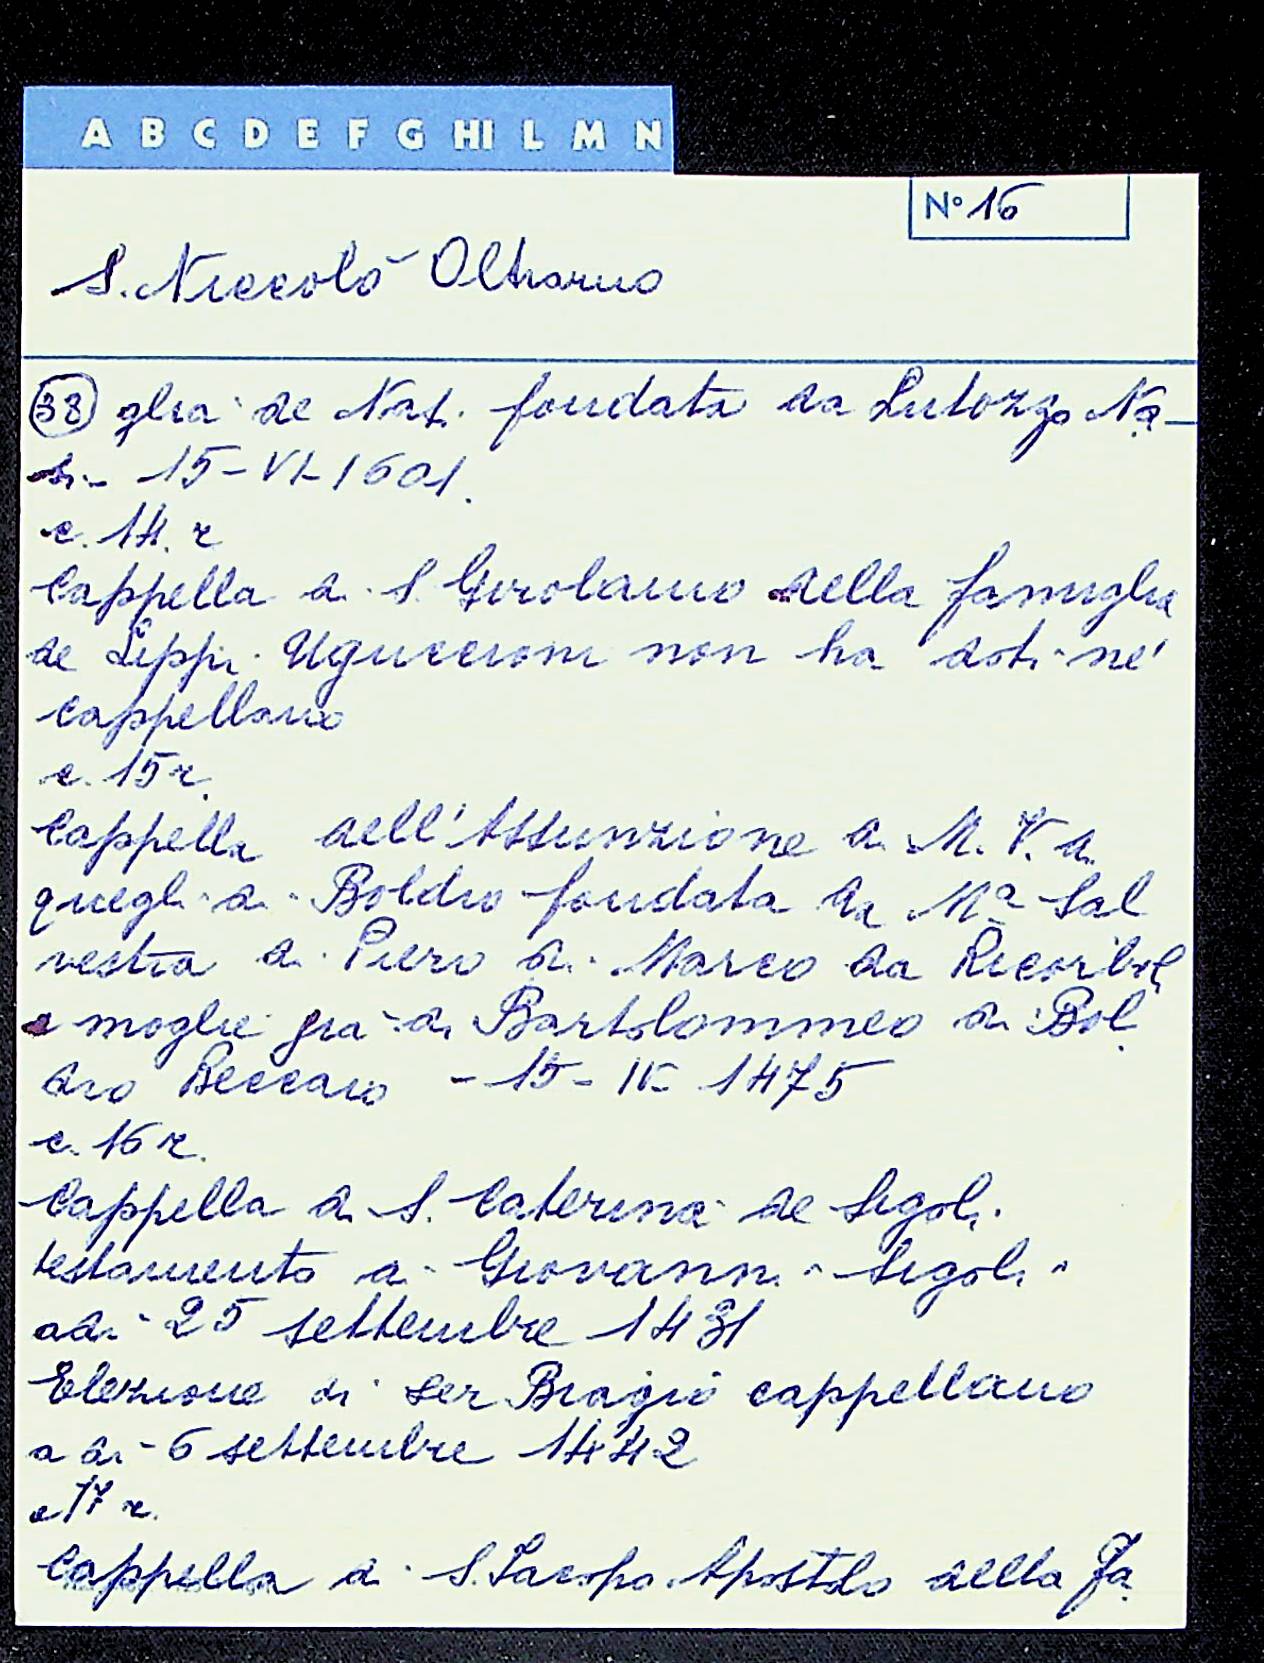 A B C D E F G HI L M N
N° 16
S. Niccolò Oltrarno
38 glia de Nasi fondata da Lutozzo Na-
si - 15-VI-1601.
c. 14. r
Cappella di S. Girolamo della famiglia
de Lippi Uguccioni non ha doti né
cappellano
c. 15 r.
Cappella dell'Assunzione di M. V. di
quegli di Boldro fondata da Mª Sal
vestra di Piero di Marco da Ricorboli
e moglie già di Bartolommeo di Bol
dro Beccaio - 15 - IV 1475
c. 16 r.
Cappella di S. Caterina de Sigoli
testamento di Giovanni Sigoli
adi 25 settembre 1431
Elezione di ser Biagio cappellano
a di 6 settembre 1442
c 17 r.
Cappella di S. Jacopo Apostolo della Fa